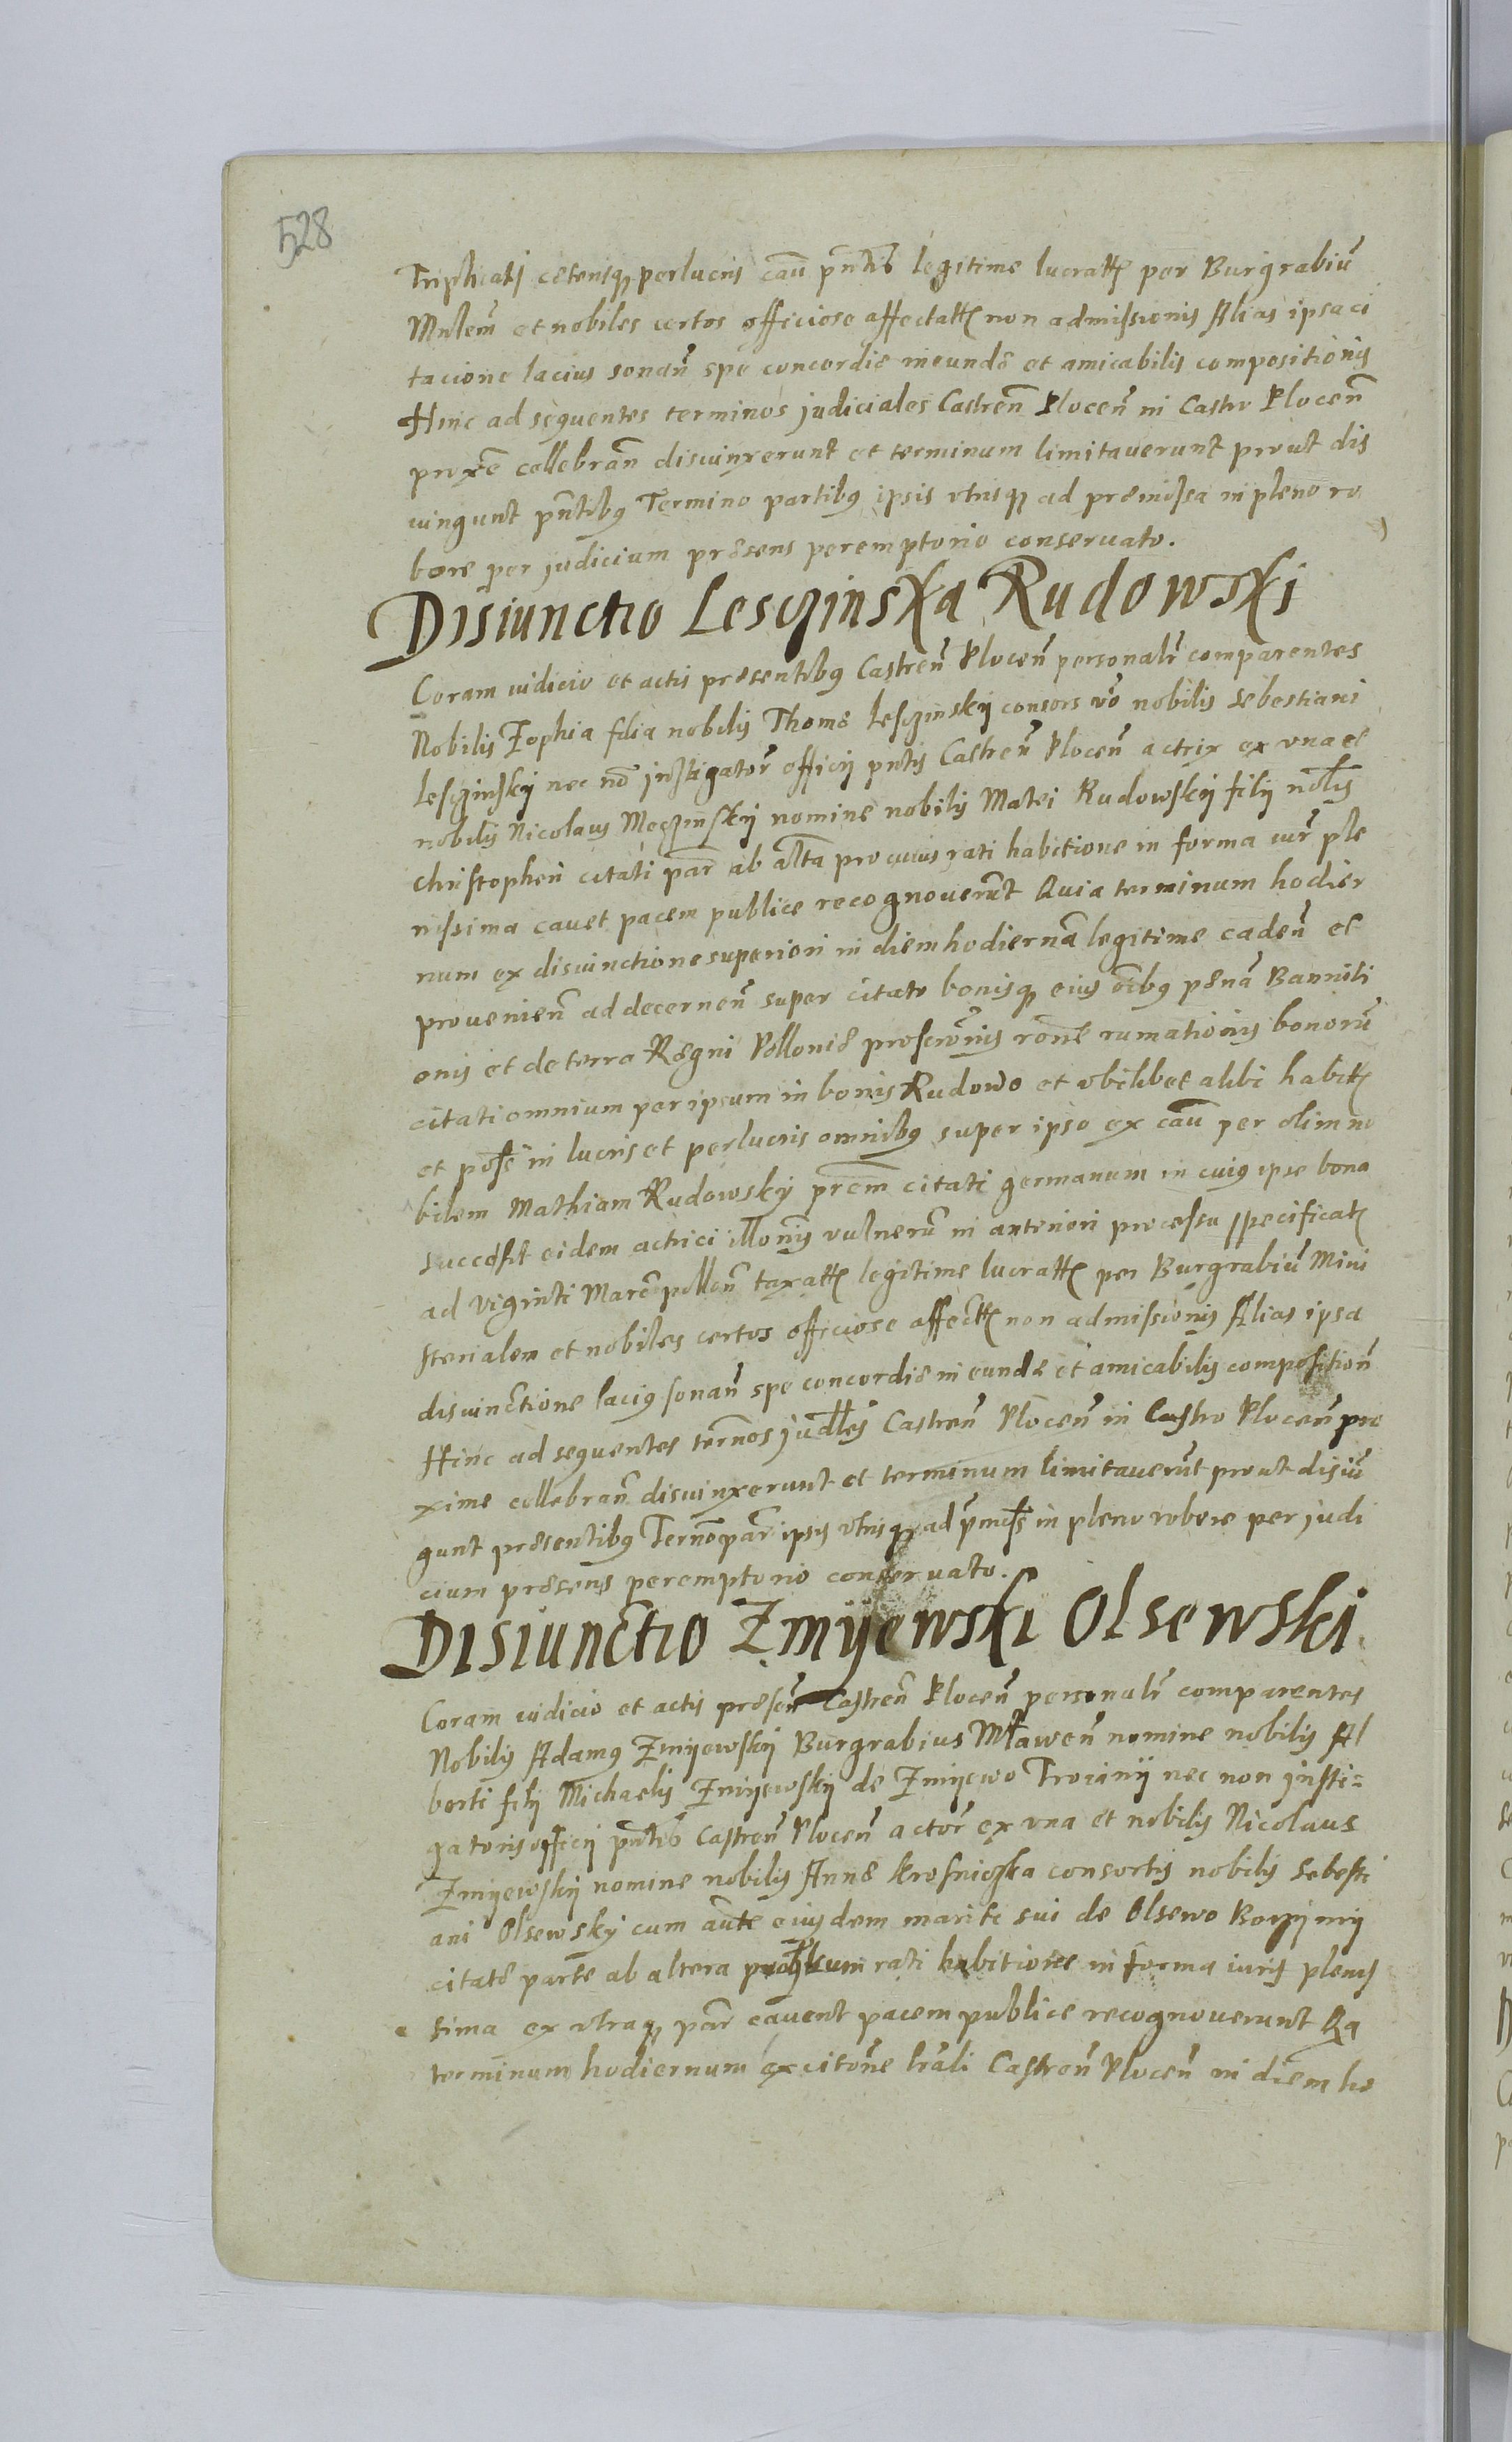 528
Triplicatis ceterisq perlucris cau pntis legitime lucratt per Burgrabiu
Mnlem et nobiles certos officiose affectatt non admissionis Alias ipsa ci
tacione lacius sonan spe concordie ineunde et amicabilis compositionis
Hinc ad sequentes terminos judiciales Castren Plocen in Castro Plocen
proxe cellebran disiuinxerunt et terminum limitauerunt prout dis
iungunt pntibus Termino partibus ipsis utrisq ad præmissa in pleno ro
bore per judicium præsens peremptorio conseruato.
Disiunctio Lesczinska Rudowski
Coram iudicio et actis præsentibus Castren Plocen personalr comparentes
Nobilis Zophia filia nobilis Thomæ Lesczinskij consors vo nobilis Sebestiani
Lesczinskij nec no jnstigator officij pntis Castren Plocen actrix ex vna et
nobilis Nicolaus Meczinskij nomine nobilis Matei Rudowskij filij noblis
Christopheri citati par ab alta pro cuius rati habitione in forma iur ple
nissima cauet pacem publice recognouerunt Quia terminum hodier
num ex disiunctione superiori in diem hodierna legitime caden et
prouenien ad decernen super citato bonisq eius oibus pæna Banniti
onis et de terra Regni Polloniæ proscronis rone rumationis bonoru
citati omnium per ipsum in bonis Rudowo et vbilibet alibi habitt
et poss in lucris et perlucris omnibus super ipso ex cau per olim no
bilem Mathiam Rudowskij prem citati germanum in cuius ipse bona
successit eidem actrici illonis vulneru in anteriori processu specificat
ad viginti Marc pollon taxatt legitime lucratt per Burgrabiu Mini
sterialem et nobiles certos officiose affectt non admissionis Alias ipsa
disiunctione lacius sonan spe concordiæ ineundæ et amicabilis composition
Hinc ad sequentes ternos judles Castren Plocen in Castro Plocen pro
xime cellebran disiuinxerunt et terminum limitauerunt prout disiu
gunt præsentibus Terno par ipsis vtrisq ad pmiss in pleno robore per judi
cium præsens peremptorio conseruato.
Disiunctio Zmijewski Olsewski
Coram iudicio et actis præsen Castren Plocen personalr comparentes
Nobilis Adamus Zmijewskij Burgrabius Mlawen nomine nobilis Al
berti filij Michaelis Zmijewskij de Zmijewo Troianij nec non jnsti=
gatoris officij pntis Castren Plocen actor ex vna et nobilis Nicolaus
Zmijewskij nomine nobilis Annæ Krosniczka consortis nobilis Sebesti
ani Olsewskij cum aute eiusdem mariti sui de Olsewo
citatæ parte ab altera rati habitione in forma iuris plenis
sima ex vtraq par cauent pacem publice recognouerunt Qa
terminum hodiernum ex citone lrali Castren Plocen in diem ho